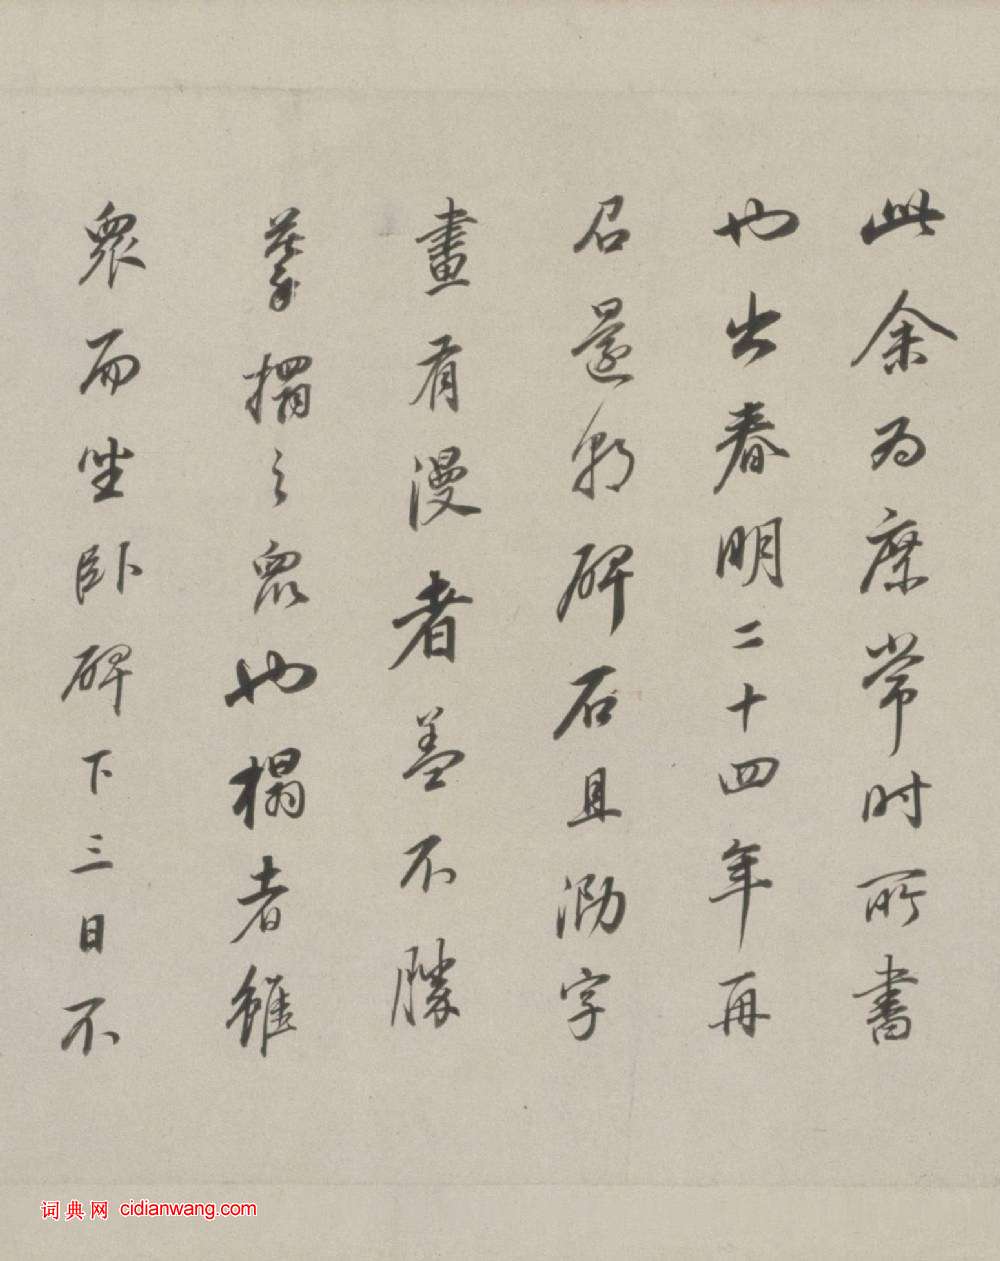 此余為庶常時所書
也出春明二十四年再
召還朝碑石且泐字
畫有漫者蓋不勝
摹搨之眾也榻者雖
眾而坐臥碑下三日不
词典网 cidianwang.com